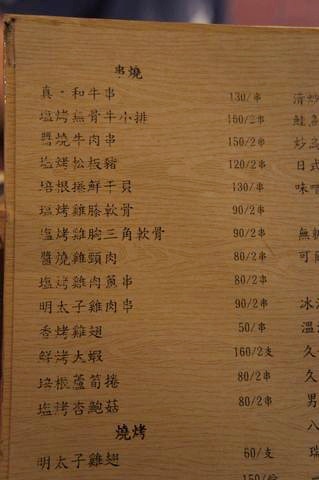 串燒
真·和牛串 130/串
塩烤無骨牛小排 160/2串
醬燒牛肉串 150/2串
塩烤松板豬 120/2串
培根捲鮮干貝 130/串
塩烤雞膝軟骨 90/2串
塩烤雞胸三角軟骨 90/2串
醬燒雞頸肉 80/2串
塩烤雞肉蔥串 80/2串
明太子雞肉串 90/2串
香烤雞翅 50/串
鮮烤大蝦 160/2支
培根蘆筍捲 80/2串
塩烤杏鮑菇 80/2串
燒烤
明太子雞翅 60/支
清炒
鮭魚
炒烏
日式
味噌
無
可
冰
溫
久
久
男
八
瑞